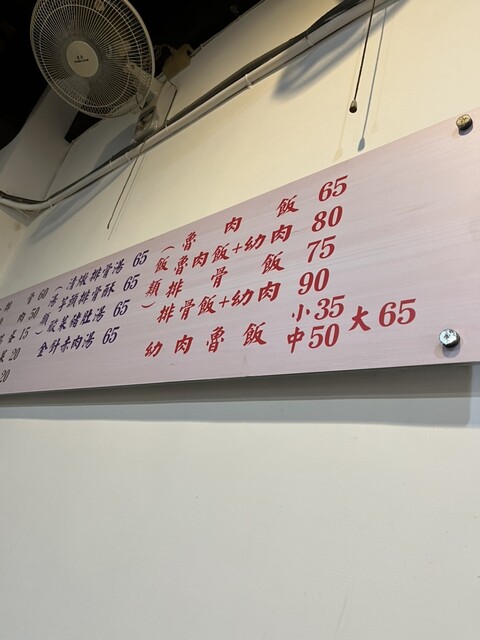 (飯類)
魯肉飯 65
魯肉飯+幼肉 80
排骨飯 75
排骨飯+幼肉 90
幼肉魯飯 小35 中50 大65
(湯類)
清燉排骨湯 65
芋頭排骨酥 65
酸菜豬肚湯 65
金針赤肉湯 65
骨 60
肉 50
蛋 15
菜 20
20